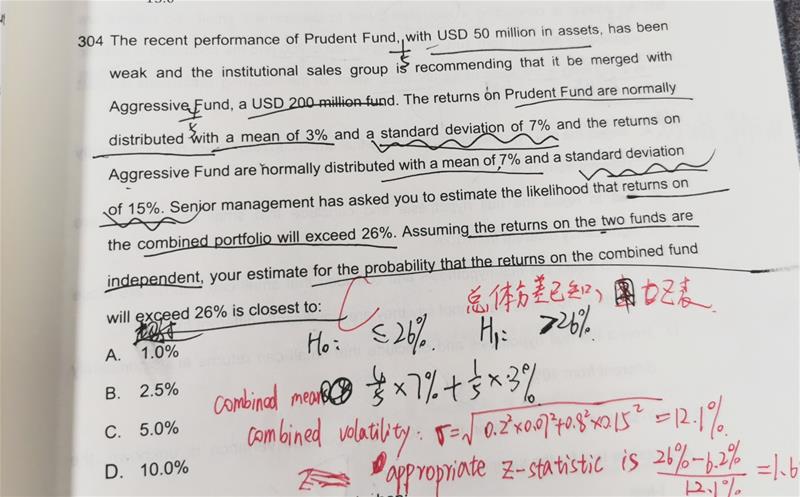 304 The recent performance of Prudent Fund, with USD 50 million in assets, has been
1/5
weak and the institutional sales group is recommending that it be merged with
Aggressive Fund, a USD 200 million fund. The returns on Prudent Fund are normally
4/5
distributed with a mean of 3% and a standard deviation of 7% and the returns on
Aggressive Fund are normally distributed with a mean of 7% and a standard deviation
of 15%. Senior management has asked you to estimate the likelihood that returns on
the combined portfolio will exceed 26%. Assuming the returns on the two funds are
independent, your estimate for the probability that the returns on the combined fund
will exceed 26% is closest to:
总体方差已知, 查Z表
H₀: ≤26% H₁: >26%
A. 1.0%
B. 2.5%
combined mean 4/5 ×7% + 1/5 ×3%
C. 5.0%
combined volatility: σ=√0.2²×0.07²+0.8²×0.15² =12.1%
D. 10.0%
appropriate z-statistic is 26%-6.2% / 12.1% =1.6